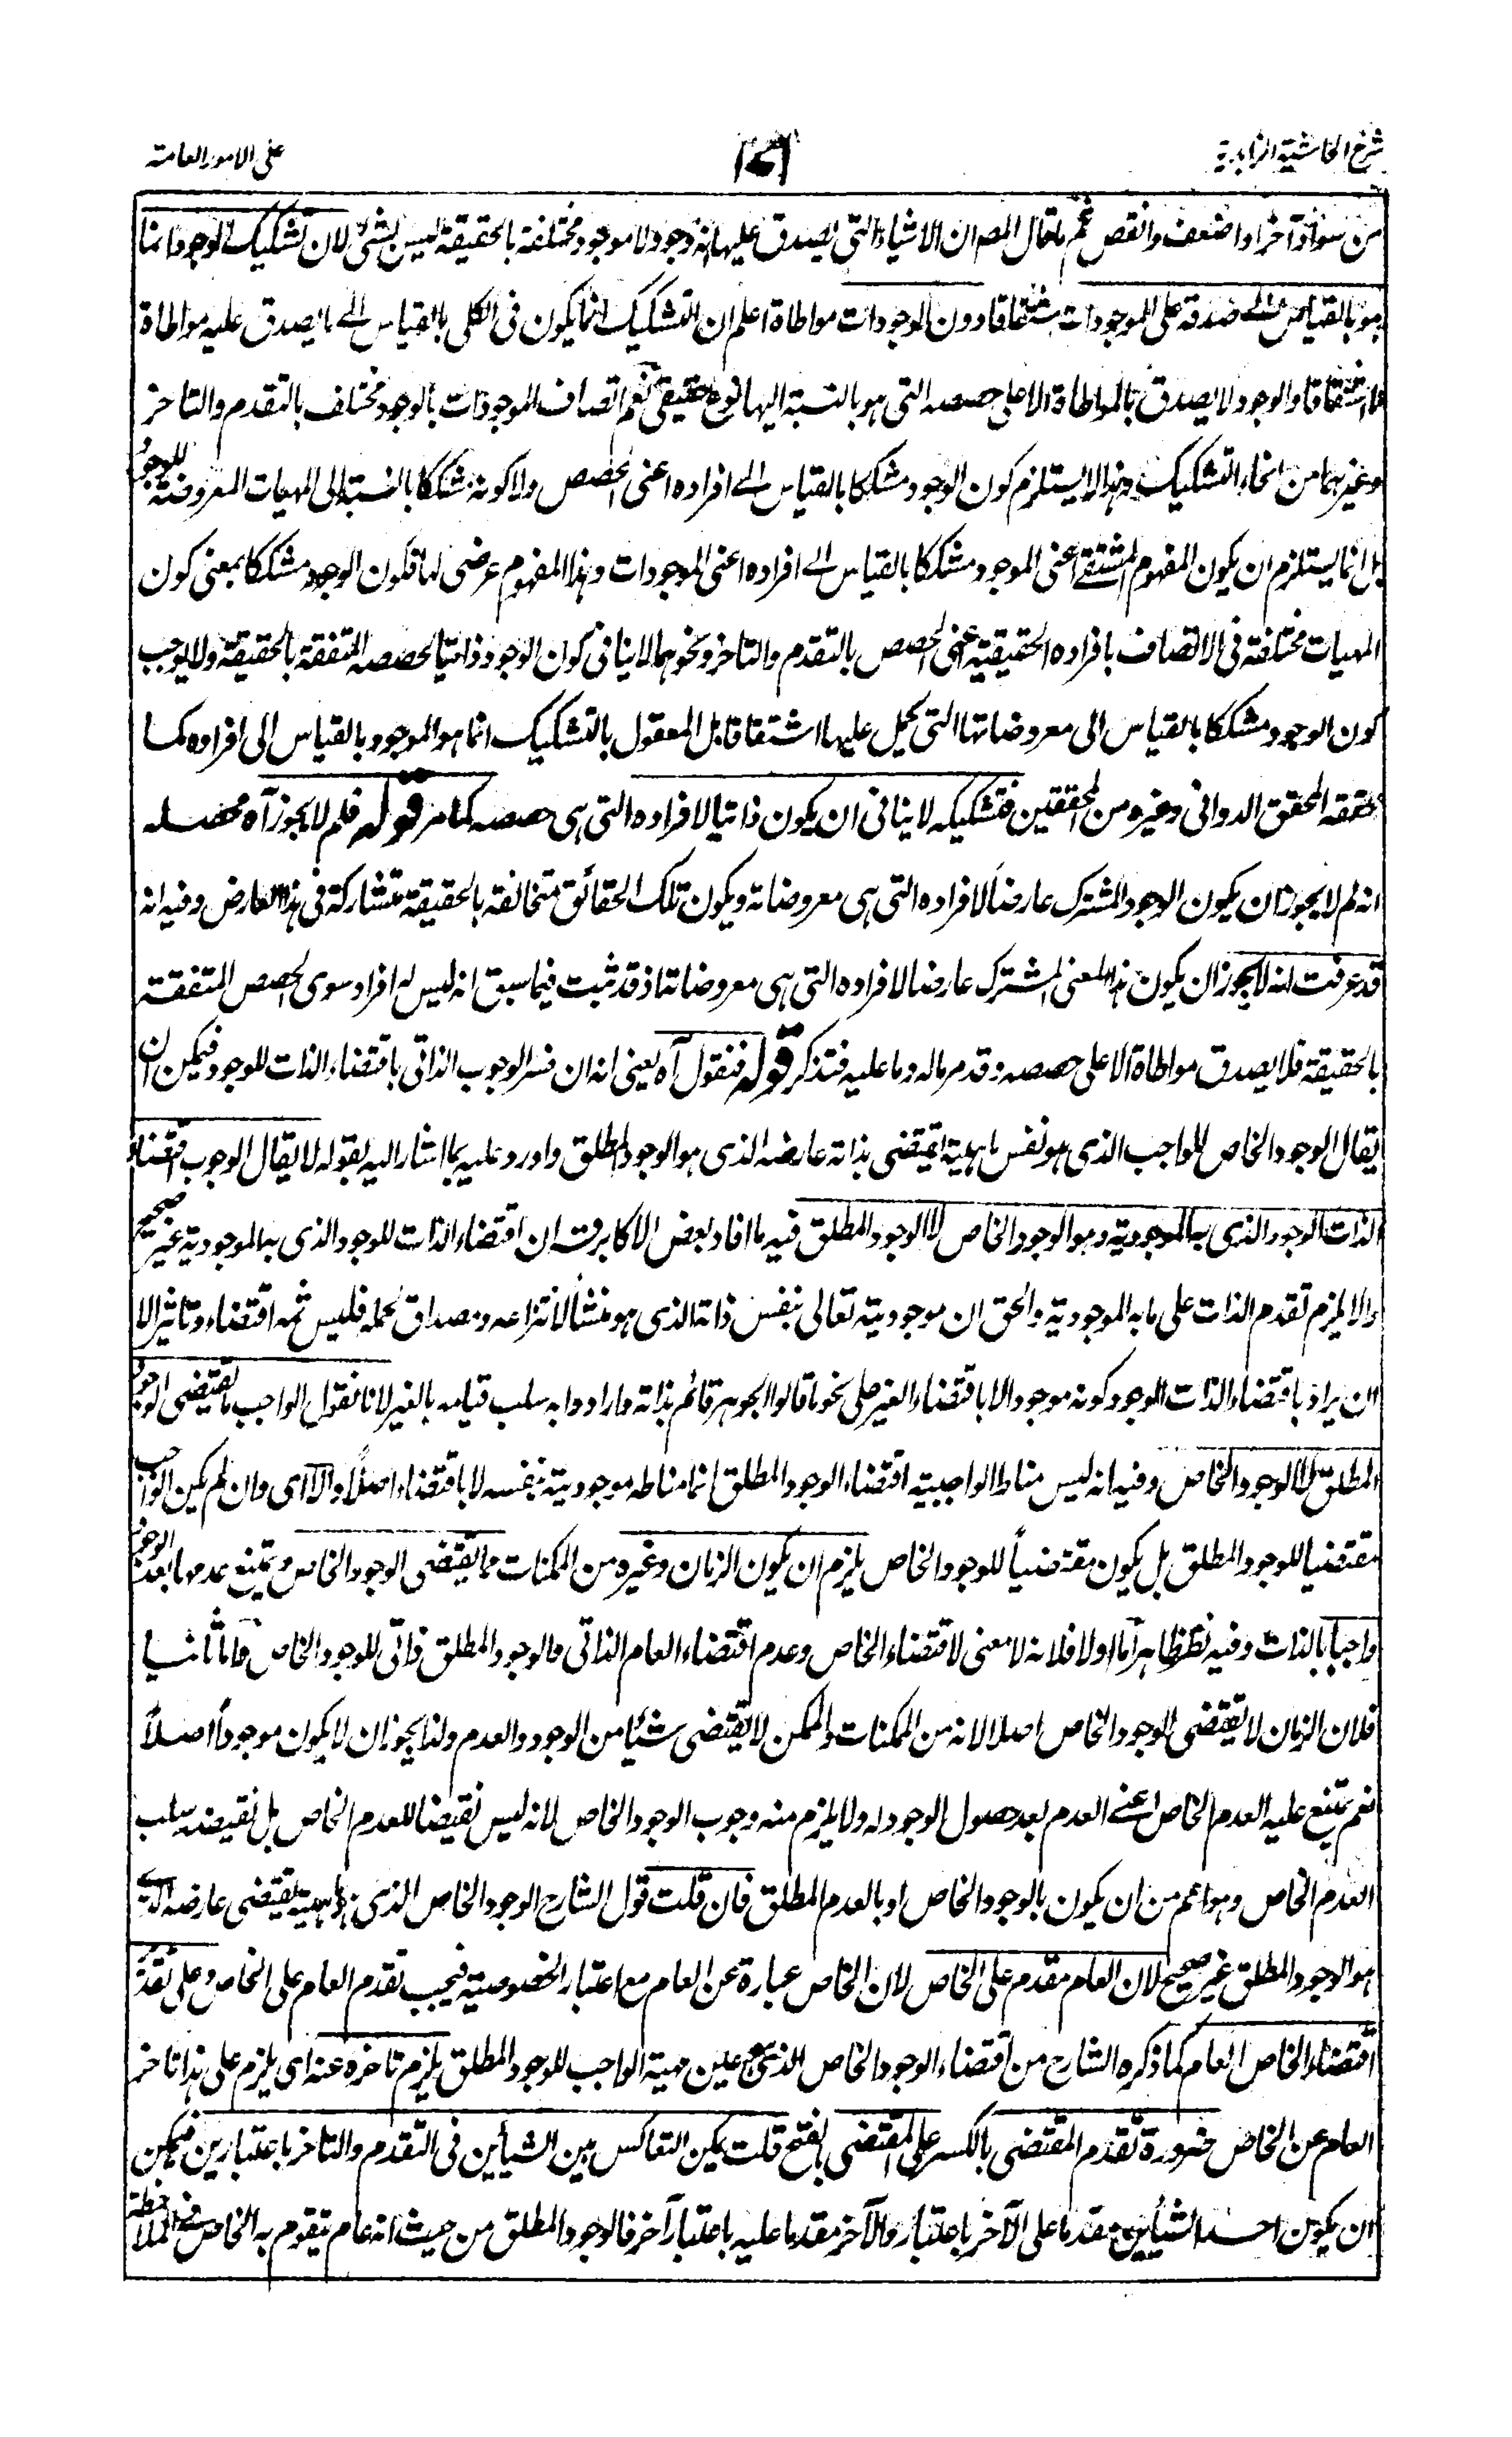 شرح الحاشية الزاهدية
على الامور العامة
من سواد آخر او اضعف وانقص ثم ما قال المصـ ان الاشياء التى يصدق عليها انه وجود ولا موجود مختلفة بالحقيقة ليس بشئ لان تشكيك الوجود انما
هو بالقياس الى صدقه على الموجودات اشتقاقا دون الوجودات مواطاة اعلم ان التشكيك انما يكون فى الكلى بالقياس الى ما يصدق عليه مواطاة
لا اشتقاقا والوجود لا يصدق بالمواطاة الا على حصصه التى هو بالنسبة اليها نوع حقيقى نعم اتصاف الموجودات بالوجود مختلف بالتقدم والتاخر
وغيرهما من انحاء التشكيك وهذا لا يستلزم كون الوجود مشككا بالقياس الى افراده اعنى الحصص ولا كونه مشككا بالنسبة الى المهيات المعروضة للوجود
بل انما يستلزم ان يكون المفهوم المشتق اعنى الموجود مشككا بالقياس الى افراده اعنى الموجودات وهذا المفهوم عرضى لها فكون الوجود مشككا بمعنى كون
المهيات مختلفة فى الاتصاف بافراده الحقيقية اعنى الحصص بالتقدم والتاخر ونحوهما لا ينافى كون الوجود ذاتيا لحصصه المتفقة بالحقيقة ولا يوجب
كون الوجود مشككا بالقياس الى معروضاتها التى يحمل عليها اشتقاقا بل المعقول بالتشكيك انما هو الموجود بالقياس الى افراده كما
حققه المحقق الدوانى وغيره من المحققين فتشكيكه لا ينافى ان يكون ذاتيا لافراده التى هى حصصه كما مر قوله فلم لا يجوز آه محصله
انه لم لا يجوز ان يكون الوجود المشترك عارضاً لافراده التى هى معروضاته ويكون تلك الحقائق متخالفة بالحقيقة متشاركة فى هذا العارض وفيه انه
قد عرفت انه لا يجوز ان يكون هذا المعنى المشترك عارضا لافراده التى هى معروضاتة اذ قد ثبت فيما سبق انه ليس له افراد سوى الحصص المتفقة
بالحقيقة فلا يصدق مواطاة الا على حصصه وقد مر ماله وما عليه فتذكر قوله فنقول آه يعنى انه ان فسر الوجوب الذاتى باقتضاء الذات للوجود فيمكن ان
يقال الوجود الخاص للواجب الذى هو نفس ماهيته يقتضى بذاته عارضه الذى هو الوجود المطلق واورد عليه بما اشار اليه بقوله لا يقال الوجوب اقتضاء
الذات الوجود الذى به الموجودية وهو الوجود الخاص لا الوجود المطلق فيه ما افاد بعض الاكابر قـ ان اقتضاء الذات للوجود الذى به الموجودية غير صحيح
والا يلزم تقدم الذات على ما به الموجودية والحق ان موجوديته تعالى بنفس ذاته الذى هو منشأ لانتزاعه ومصداق لحمله فليس ثمه اقتضاء وتاثير الا
ان يراد باقتضاء الذات الوجود كونه موجودا لا باقتضاء الغير على نحو ما قالوا الجوهر قائم بذاته وارادوا به سلب قيامه بالغير لانا نقول الواجب ما يقتضى الوجود
المطلق لا الوجود الخاص وفيه انه ليس مناط الواجبية اقتضاء الوجود المطلق انما مناطه موجوديته بنفسه لا باقتضاء اصلاً والا اى وان لم يكن الواجب
مقتضيا للوجود المطلق بل يكون مقتضياً للوجود الخاص يلزم ان يكون الزمان وغيره من الممكنات مما يقتضى الوجود الخاص ويمتنع عدمها بعد الوجود
واجبا بالذات وفيه نظر ظاهر اما اولا فلانه لا معنى لاقتضاء الخاص وعدم اقتضاء العام الذاتى فالوجود المطلق ذاتى للوجود الخاص واما ثانيا
فلان الزمان لا يقتضى الوجود الخاص اصلا لانه من الممكنات والممكن لا يقتضى شيئا من الوجود والعدم ولذا يجوز ان لا يكون موجوداً اصلاً
نعم يمتنع عليه العدم الخاص اعنى العدم بعد حصول الوجود له ولا يلزم منه وجوب الوجود الخاص لانه ليس نقيضا للعدم الخاص بل نقيضه سلب
العدم الخاص وهو اعم من ان يكون بالوجود الخاص او بالعدم المطلق فان قلت قول الشارح الوجود الخاص الذى هو ماهيته يقتضى عارضه الذى
هو الوجود المطلق غير صحيح لان العام مقدم على الخاص لان الخاص عبارة عن العام مع اعتبار الخصوصية فيجب تقدم العام على الخاص وعلى تقدير
اقتضاء الخاص العام كما ذكره الشارح من اقتضاء الوجود الخاص الذى هو عين مهية الواجب للوجود المطلق يلزم تاخره عنه اى يلزم على هذا تاخر
العام عن الخاص ضرورة تقدم المقتضى بالكسر على المقتضى بالفتح قلت يمكن التعاكس بين الشيأين فى التقدم والتاخر باعتبارين فيمكن
ان يكون احد الشيأين مقدما على الآخر باعتبار والآخر مقدما عليه باعتبار آخر فالوجود المطلق من حيث انه عام يتقوم به الخاص فى الملاحظة